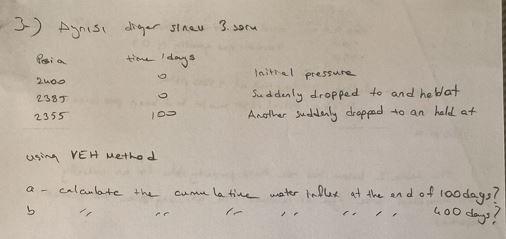 3-) Aynısı diğer sınav 3. soru
Psia time/days
2400 0 Initial pressure
2385 0 Suddenly dropped to and held at
2355 100 Another suddenly dropped to an held at
using VEH Method
a - calculate the cumulative water influx at the end of 100 days?
b " " " " " " " 400 days?